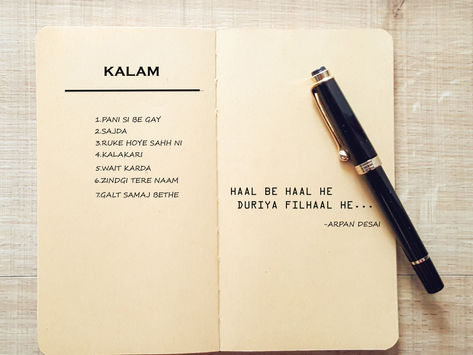 KALAM
1.PANI SI BE GAY
2.SAJDA
3.RUKE HOYE SAHH NI
4.KALAKARI
5.WAIT KARDA
6.ZINDGI TERE NAAM
7.GALT SAMAJ BETHE
HAAL BE HAAL HE
DURIYA FILHAAL HE...
-ARPAN DESAI